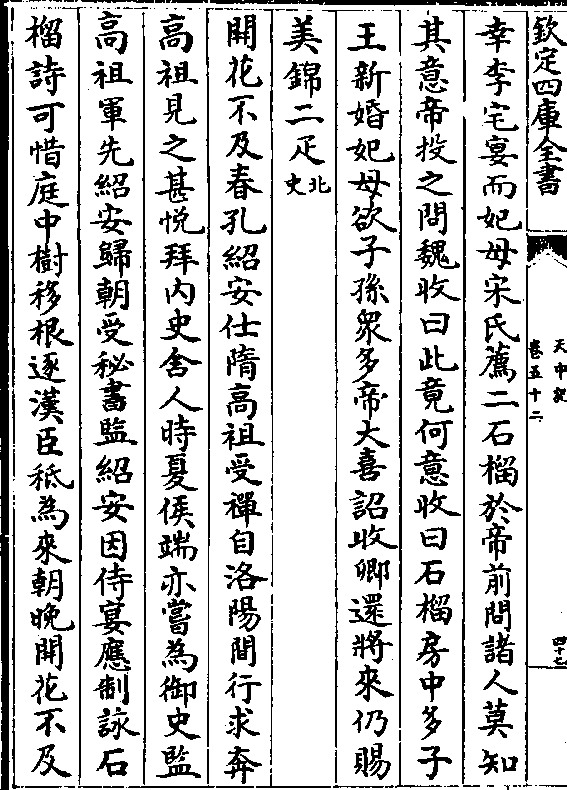 欽定四庫全書
天中記
卷五十二
四十七
幸李宅宴而妃母宋氏薦二石榴於帝前問諸人莫知
其意帝投之問魏收曰此竟何意收曰石榴房中多子
王新婚妃母欲子孫衆多帝大喜詔收卿還將來仍賜
美錦二疋北史
開花不及春孔紹安仕隋高祖受禪自洛陽間行求奔
高祖見之甚悅拜内史舍人時夏侯端亦嘗為御史監
高祖軍先紹安歸朝受秘書監紹安因侍宴應制詠石
榴詩可惜庭中樹移根逐漢臣秪為來朝晚開花不及